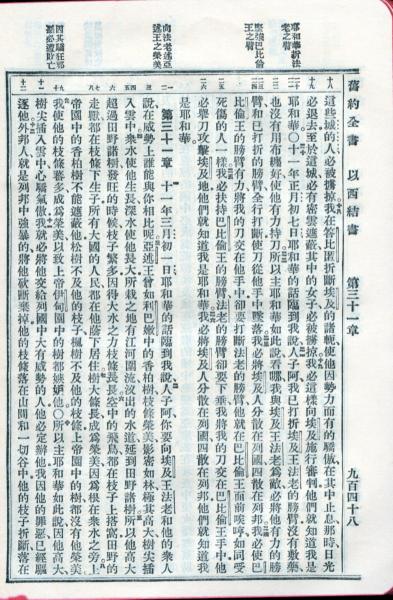 舊約全書 以西結書 第三十一章 九百四十八
耶和華折法老之臂
堅強巴比倫王之臂
向法老述亞述王之榮美
因其驕狂邪惡必遭敗亡
這些城的人必被擄掠我在答比匿折斷埃及的諸軛使他因勢力而有的驕傲在其中止息那時日光
必退去至於這城必有密雲遮蔽其中的女子必被擄掠我必這樣向埃及施行審判他們就知道我是
耶和華〇十一年正月初七日耶和華的話臨到我說人子阿我已打折埃及王法老的膀臂沒有敷藥
也沒有用布纏好使他有力持刀所以主耶和華如此說看哪我與埃及王法老爲敵必將他有力的膀
臂和已打折的膀臂全行打斷使刀從他手中墜落我必將埃及人分散在列國四散在列邦我必使巴
比倫王的膀臂有力將我的刀交在他手中卻要打斷法老的膀臂他就在巴比倫王面前唉哼如同受
死傷的人一樣我必扶持巴比倫王的膀臂法老的膀臂卻要下垂我將我的刀交在巴比倫王手中他
必舉刀攻擊埃及地他們就知道我是耶和華我必將埃及人分散在列國四散在列邦他們就知道我
是耶和華
第三十一章 十一年三月初一日耶和華的話臨到我說人子阿你要向埃及王法老和他的衆人
說在威勢上誰能與你相比呢亞述王曾如利巴嫩中的香柏樹枝條榮美影密如林極其高大樹尖插
入雲中衆水使他生長深水使他長大所栽之地有江河圍流汊出的水道延到田野諸樹所以他高大
超過田野諸樹發旺的時候枝子繁多因得大水之力枝條長長空中的飛鳥都在枝子上搭窩田野的
走獸都在枝條下生子所有大國的人民都在他蔭下居住樹大條長成爲榮美因爲根在衆水之旁上
帝園中的香柏樹不能遮蔽他松樹不及他的枝子楓樹不及他的枝條上帝園中的樹都沒有他榮美
我使他的枝條蕃多成爲榮美以致上帝伊甸園中的樹都嫉妒他〇所以主耶和華如此說因他高大
樹尖插入雲中心驕氣傲我就必將他交給列國中大有威勢的人他必定辦他我因他的罪惡已經驅
逐他外邦人就是列邦中強暴的將他砍斷棄掉他的枝條落在山間和一切谷中他的枝子折斷落在